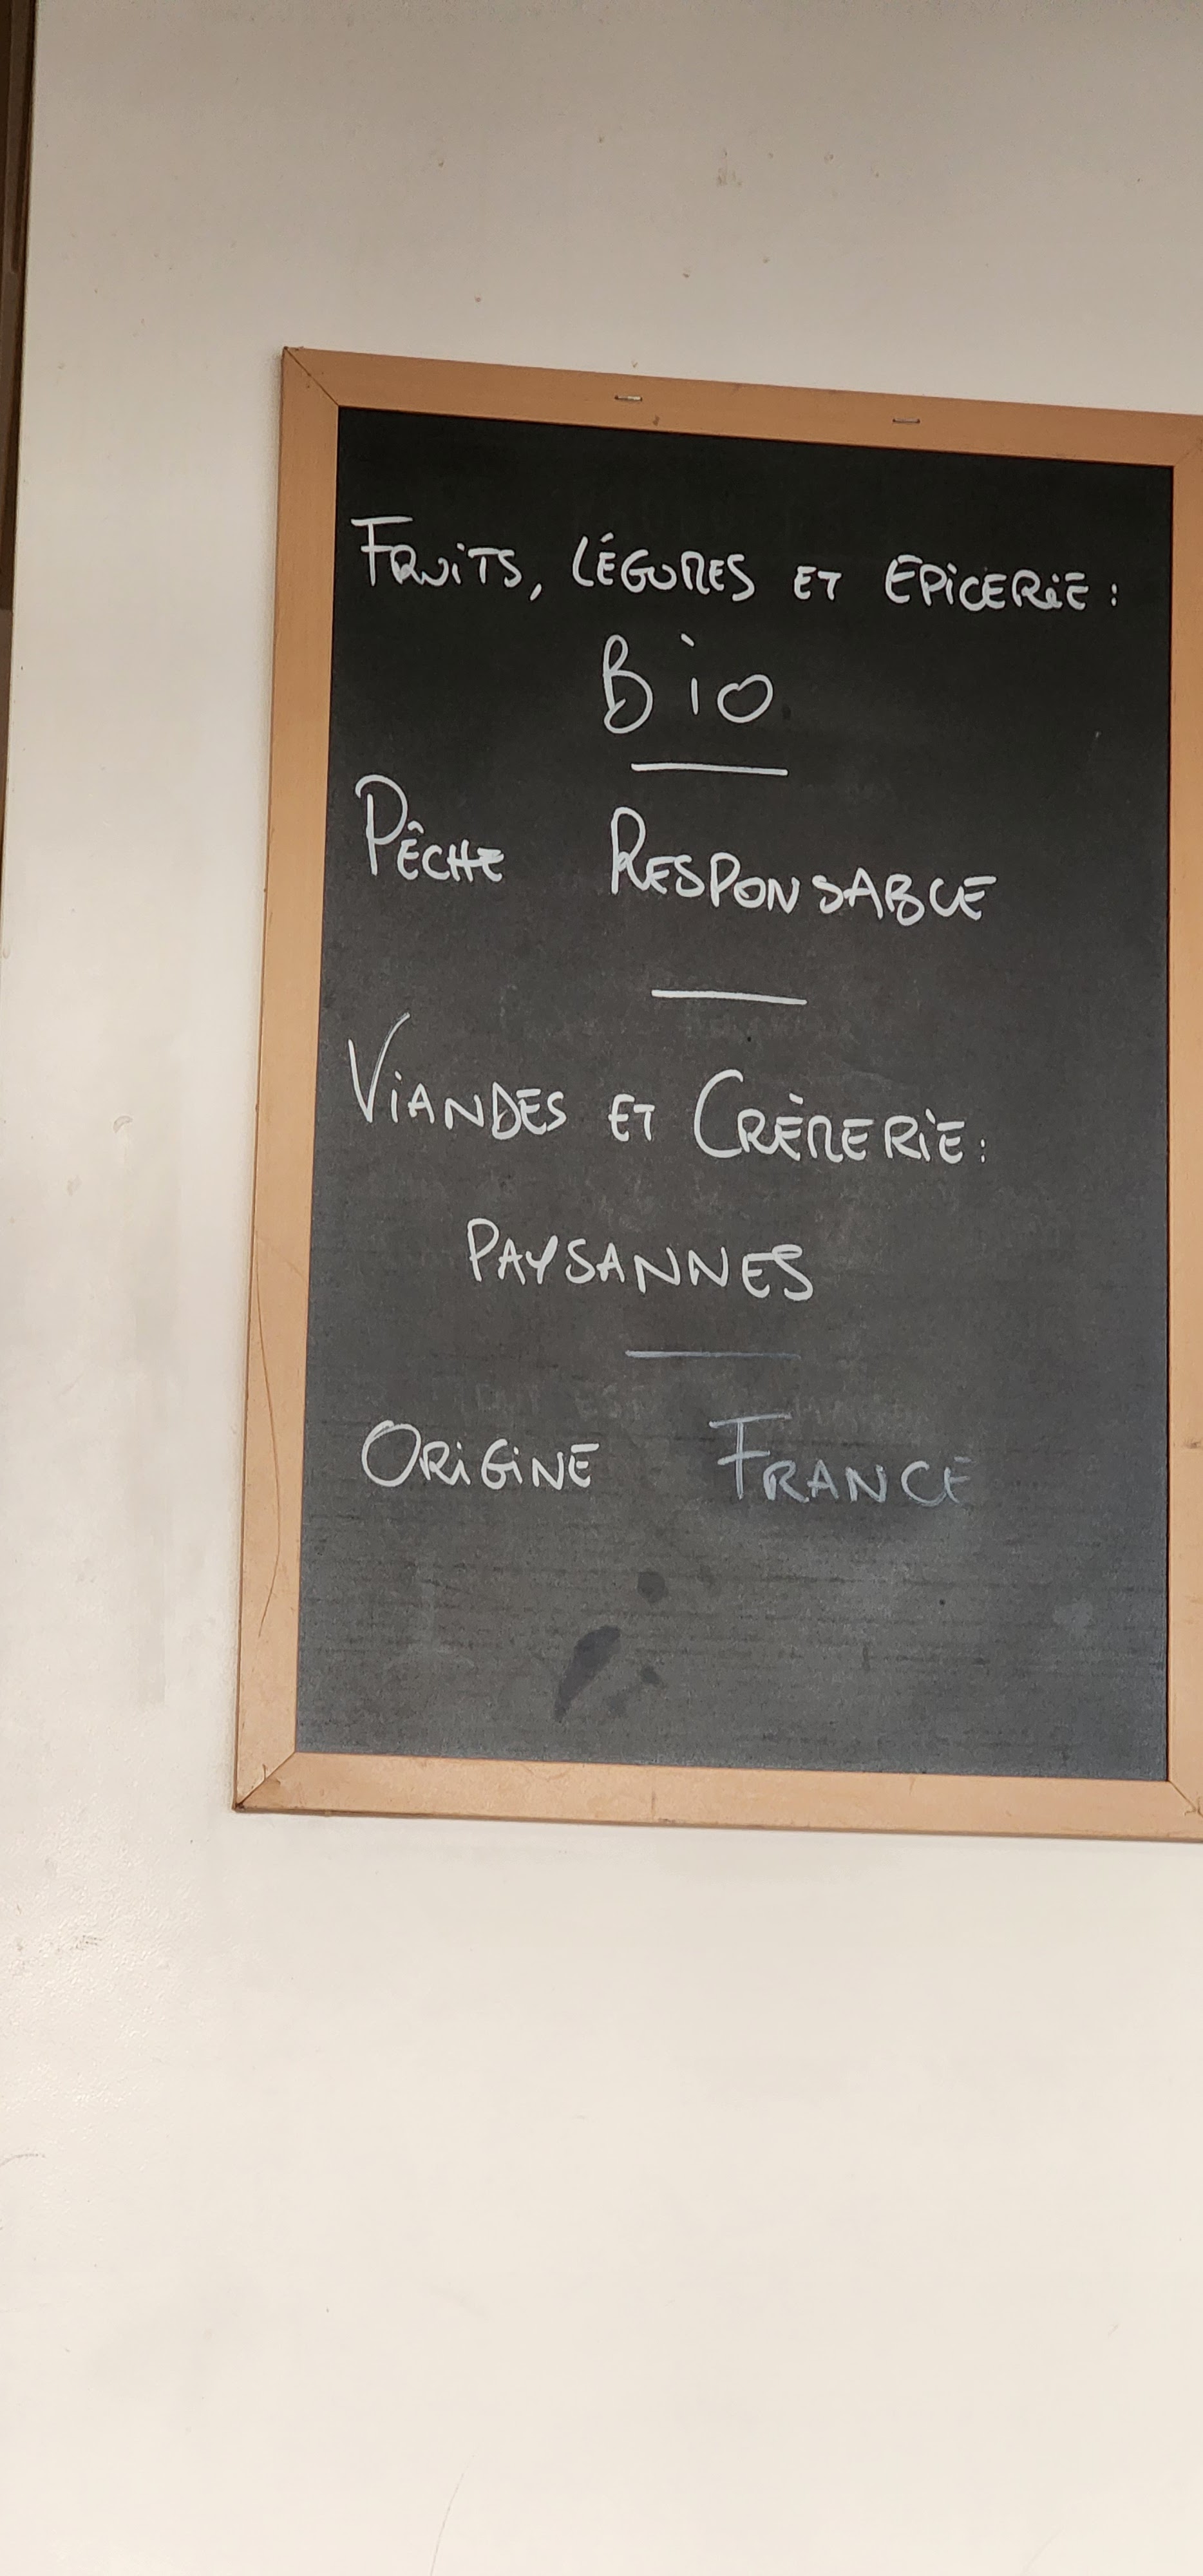 FRUiTS, LÉGUMES ET EPiCERiE :
BiO
PÊCHE RESPONSABLE
ViANDES ET CRÈMERiE :
PAYSANNES
ORiGiNE FRANCE